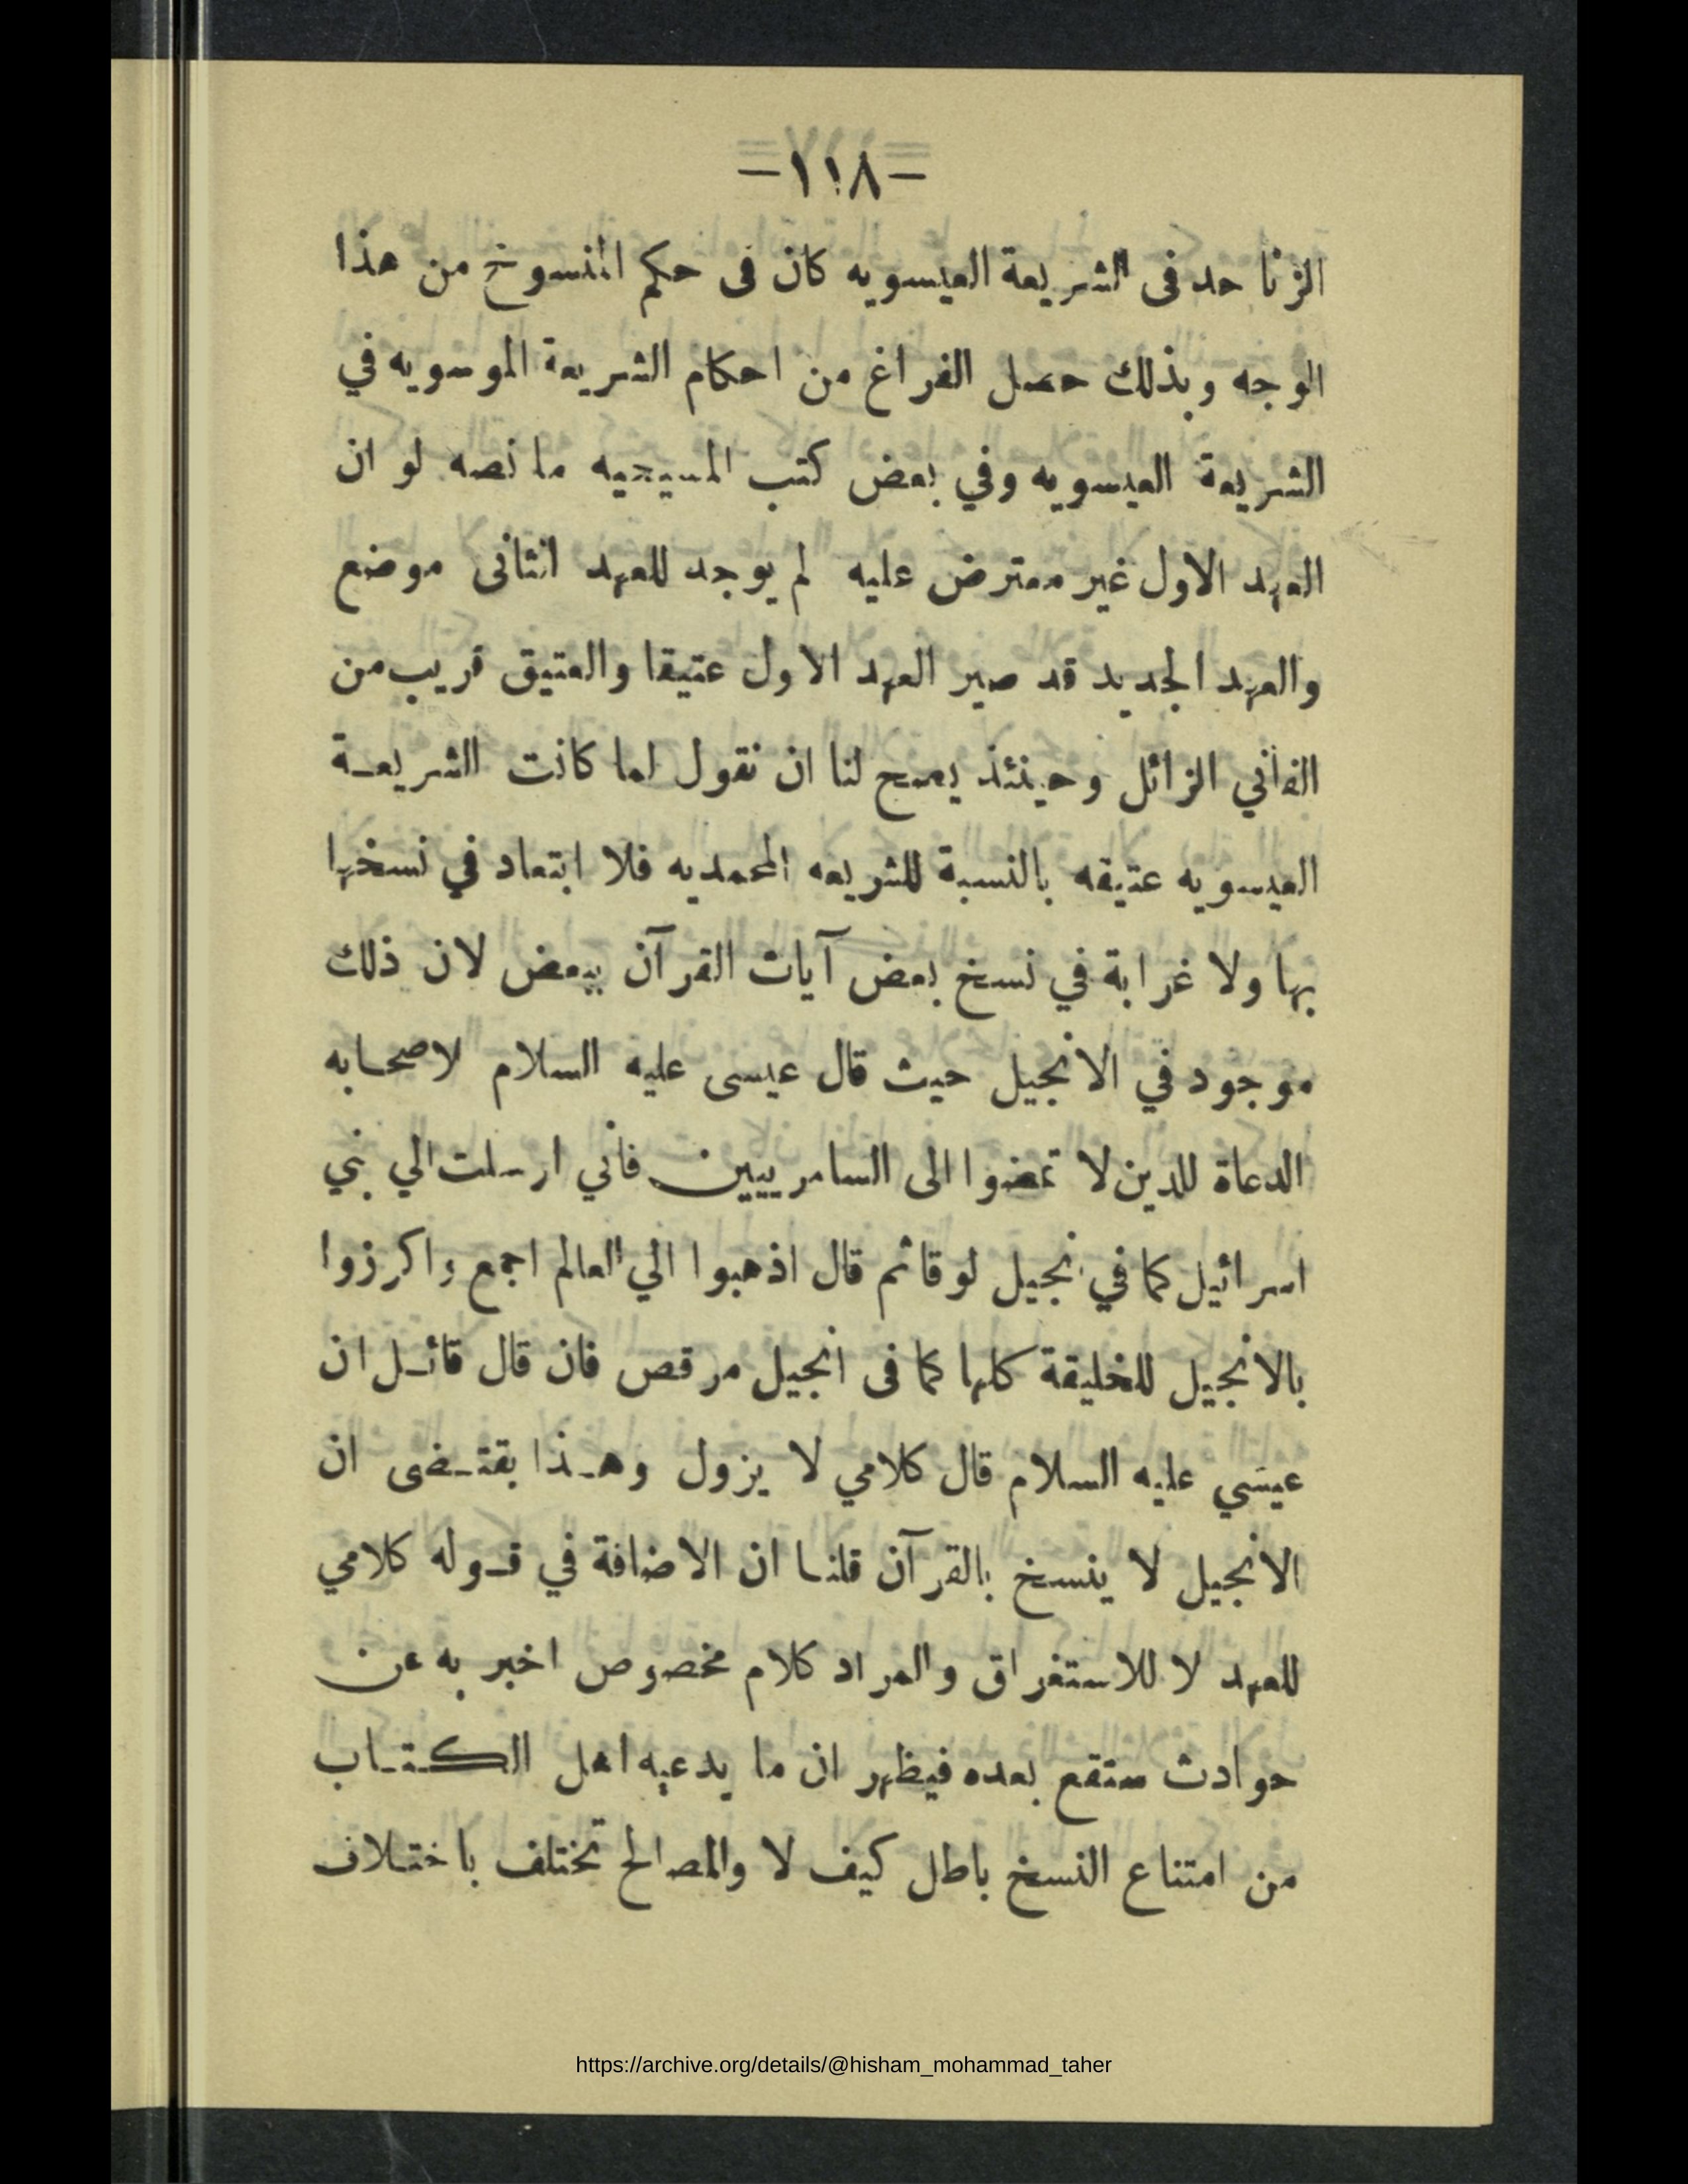 –١١٨–
الزنا حد فى الشريعة العيسويه كان فى حكم المنسوخ من هذا
الوجه وبذلك حصل الفراغ من احكام الشريعة الموسويه في
الشريعة العيسويه وفي بعض كتب المسيحيه ما نصه لو ان
العهد الاول غير معترض عليه لم يوجد للعهد الثانى موضع
والعهد الجديد قد صير العهد الاول عتيقا والعتيق قريب من
الفاني الزائل وحينئذ يصح لنا ان نقول لما كانت الشريعة
العيسويه عتيقه بالنسبة للشريعه المحمديه فلا ابتعاد في نسخها
بها ولا غرابة في نسخ بعض آيات القرآن ببعض لان ذلك
موجود في الانجيل حيث قال عيسى عليه السلام لاصحابه
الدعاة للدين لا تمضوا الى السامريين فاني ارسلت الي بني
اسرائيل كما في انجيل لوقا ثم قال اذهبوا الي العالم اجمع واكرزوا
بالانجيل للخليقة كلها كما فى انجيل مرقص فان قال قائل ان
عيسي عليه السلام قال كلامي لا يزول وهذا يقتضى ان
الانجيل لا ينسخ بالقرآن قلنا ان الاضافة في قوله كلامي
للعهد لا للاستغراق والمراد كلام مخصوص اخبر به عن
حوادث ستقع بعده فيظهر ان ما يدعيه اهل الكتاب
من امتناع النسخ باطل كيف لا والمصالح تختلف باختلاف
https://archive.org/details/@hisham_mohammad_taher